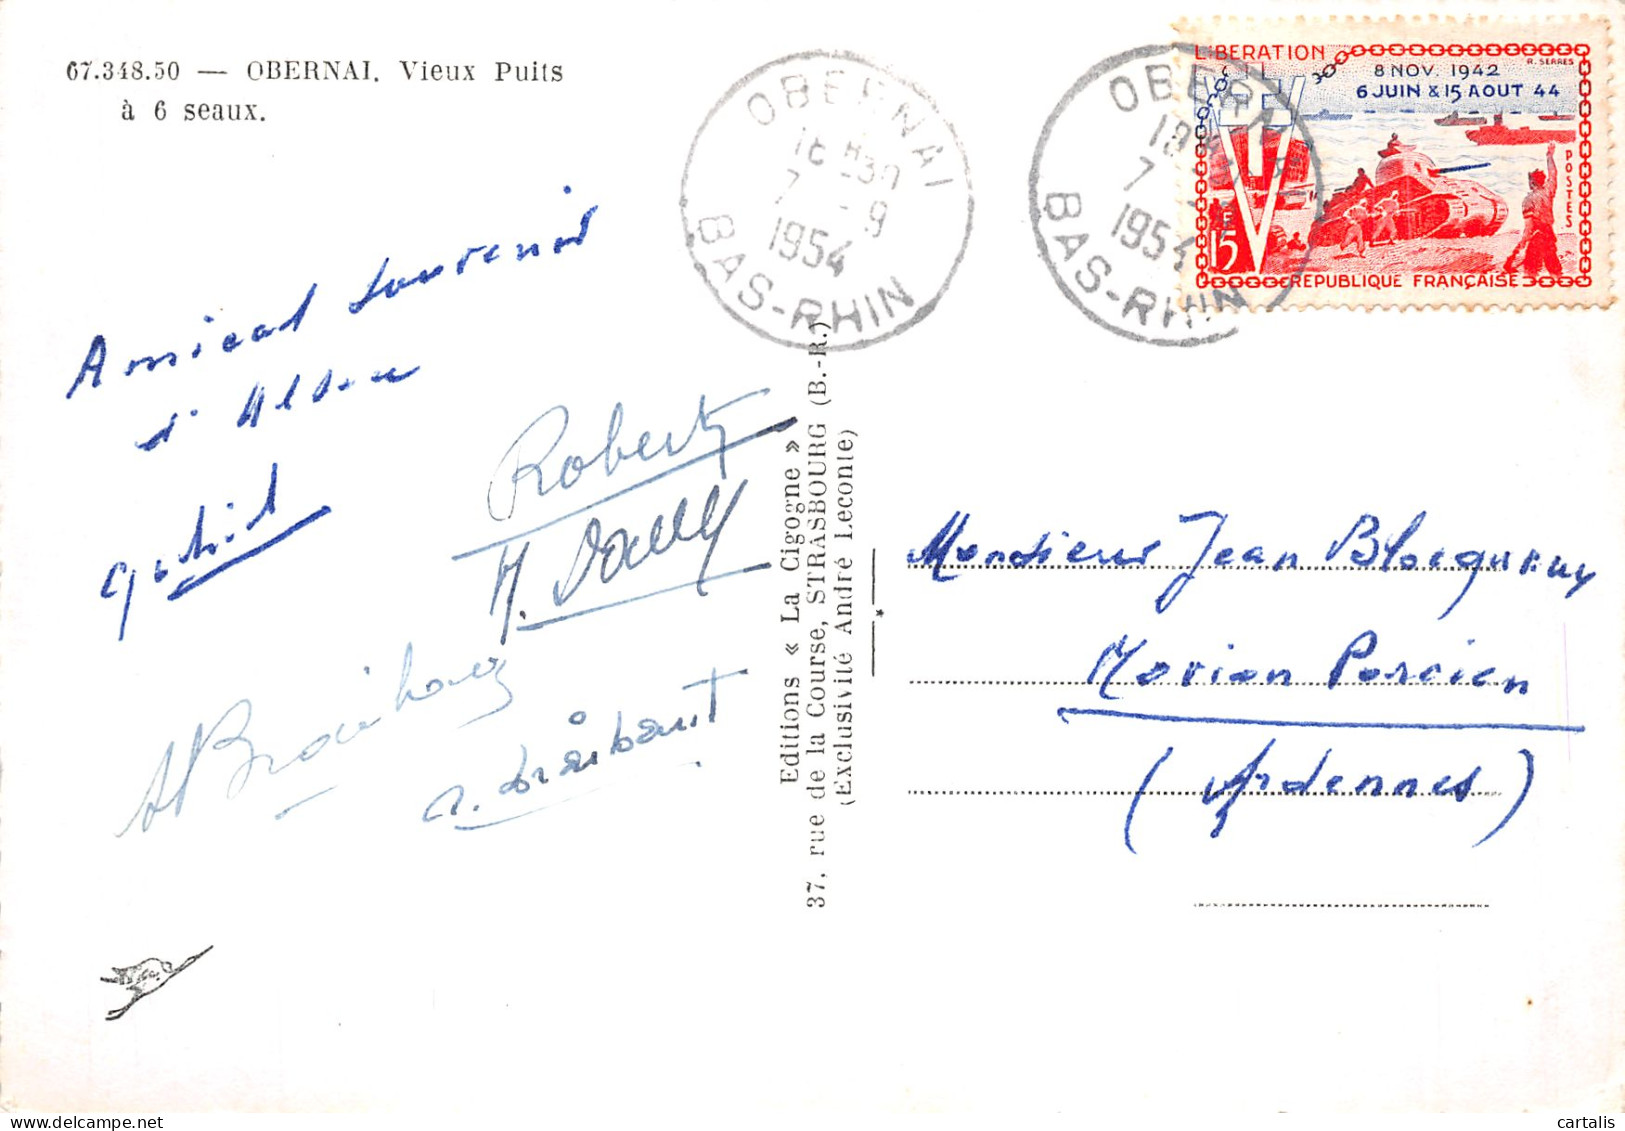 67.348.50 — OBERNAI. Vieux Puits
à 6 seaux.
OBERNAI
7 - 9
1954
BAS-RHIN
OBERNAI
7
1954
BAS-RHIN
LIBERATION
R. SERRES
8 NOV. 1942
6 JUIN & 15 AOUT 44
POSTES
15
REPUBLIQUE FRANÇAISE
Amical souvenir
d'Alsace
Robert
Editions « La Cigogne »
37, rue de la Course, STRASBOURG (B.-R.)
(Exclusivité André Leconte)
*
Monsieur Jean
Novion Porcien
(Ardennes)
cartalis.com